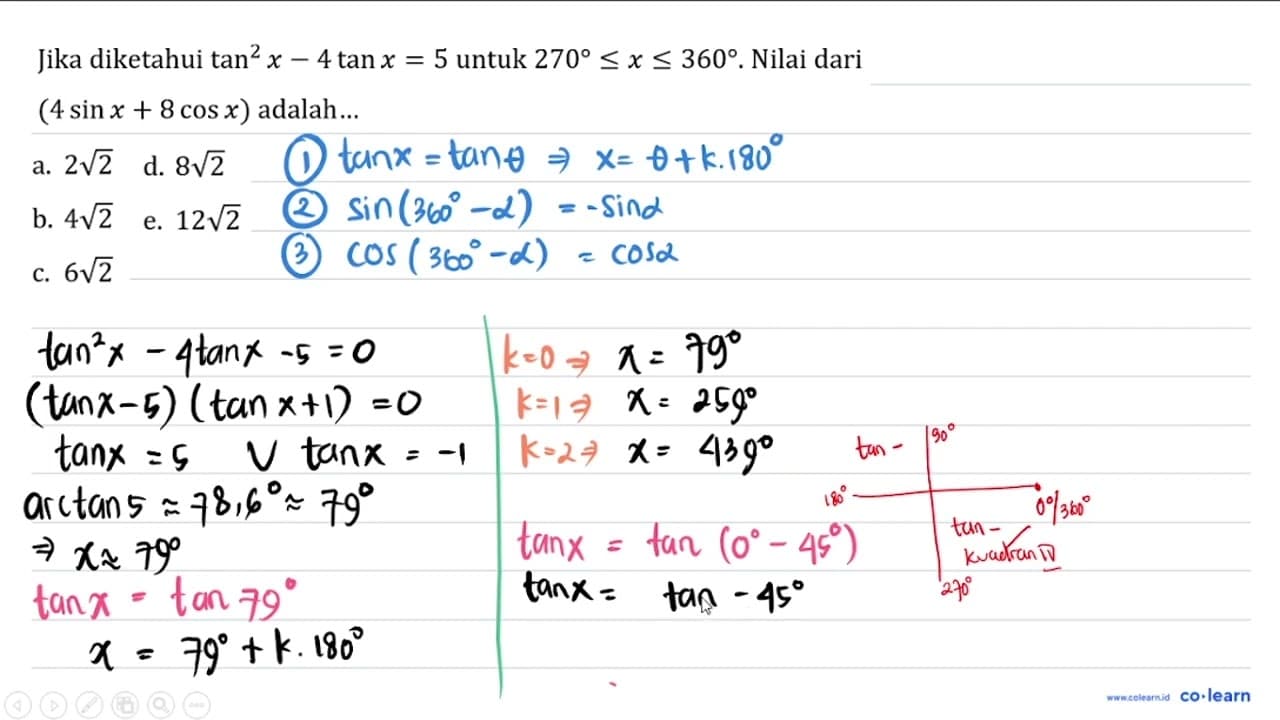 Jika diketahui tan² x − 4 tan x = 5 untuk 270° ≤ x ≤ 360°. Nilai dari
(4 sin x + 8 cos x) adalah...
a. 2√2 d. 8√2
b. 4√2 e. 12√2
c. 6√2
① tanx = tanθ ⇒ x = θ + k.180°
② sin(360° - α) = -sinα
③ cos(360° - α) = cosα
tan²x - 4tanx - 5 = 0
(tanx - 5)(tan x + 1) = 0
tanx = 5 V tanx = -1
arctan 5 ≈ 78,6° ≈ 79°
⇒ x ≈ 79°
tanx = tan 79°
x = 79° + k.180°
k=0 ⇒ x = 79°
k=1 ⇒ x = 259°
k=2 ⇒ x = 439°
tanx = tan (0° - 45°)
tanx = tan - 45°
90°
tan -
180°
0°/360°
tan -
kuadran IV
270°
www.colearn.id co·learn